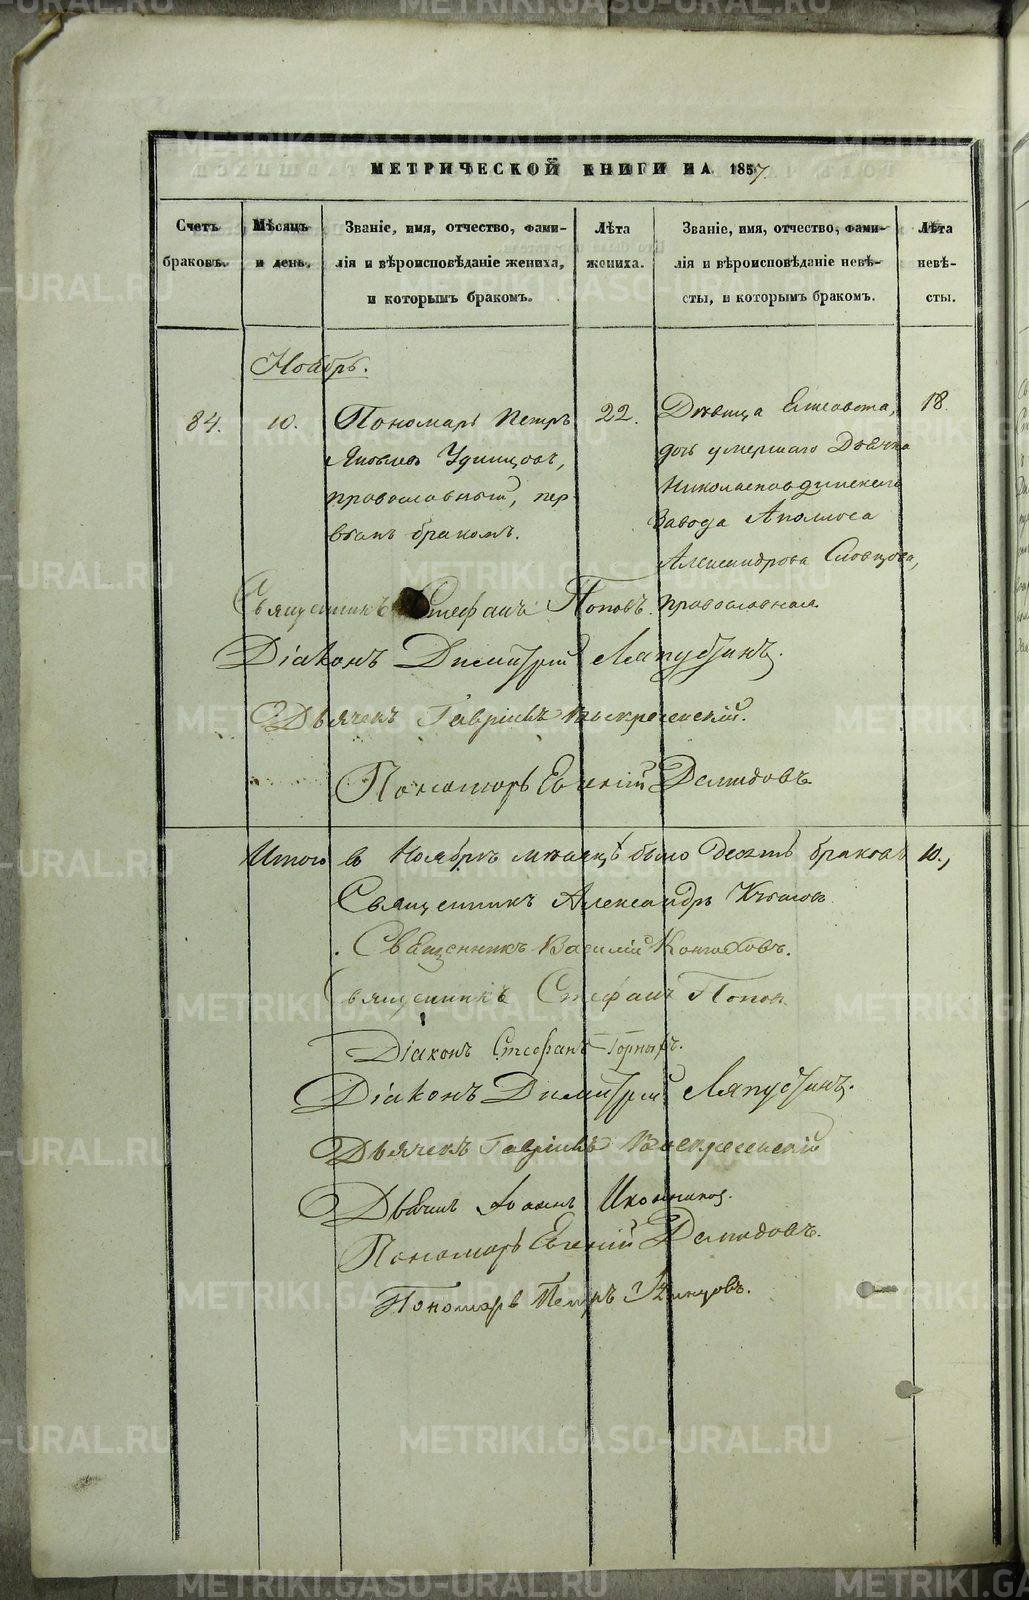 МЕТРИЧЕСКОЙ КНИГИ НА 1857.
Счетъ браковъ.
Мѣсяцъ и день.
Званіе, имя, отчество, фами-
лія и вѣроисповѣданіе жениха,
и которымъ бракомъ.
Лѣта жениха.
Званіе, имя, отчество, фами-
лія и вѣроисповѣданіе невѣ-
сты, и которымъ бракомъ.
Лѣта невѣ-
сты.
Ноябрь.
84.
10.
Пономарь Петръ
Яковлевъ Удинцовъ,
православный, пер-
вымъ бракомъ.
22.
Дѣвица Елисавета,
дочь умершаго Дьячка
Николаепавдинскаго
Завода Аполлоса
Александрова Словцова,
православная.
18.
Священникъ Стефанъ Поповъ.
Діаконъ Димитрій Ляпустинъ.
Дьячекъ Гавріилъ Воскресенскій.
Пономарь Евгеній Демидовъ.
Итого въ Ноябрѣ мѣсяцѣ было десять браковъ 10.,
Священникъ Александръ
Священникъ Василій
Священникъ Стефанъ Попов
Діаконъ Стефанъ Горныхъ.
Діаконъ Димитрій Ляпустинъ.
Дьячекъ Гавріилъ Воскресенскій
Дьячекъ Іоаннъ Иконников.
Пономарь Евгеній Демидовъ.
Пономарь Петръ Удинцовъ.
METRIKI.GASO-URAL.RU